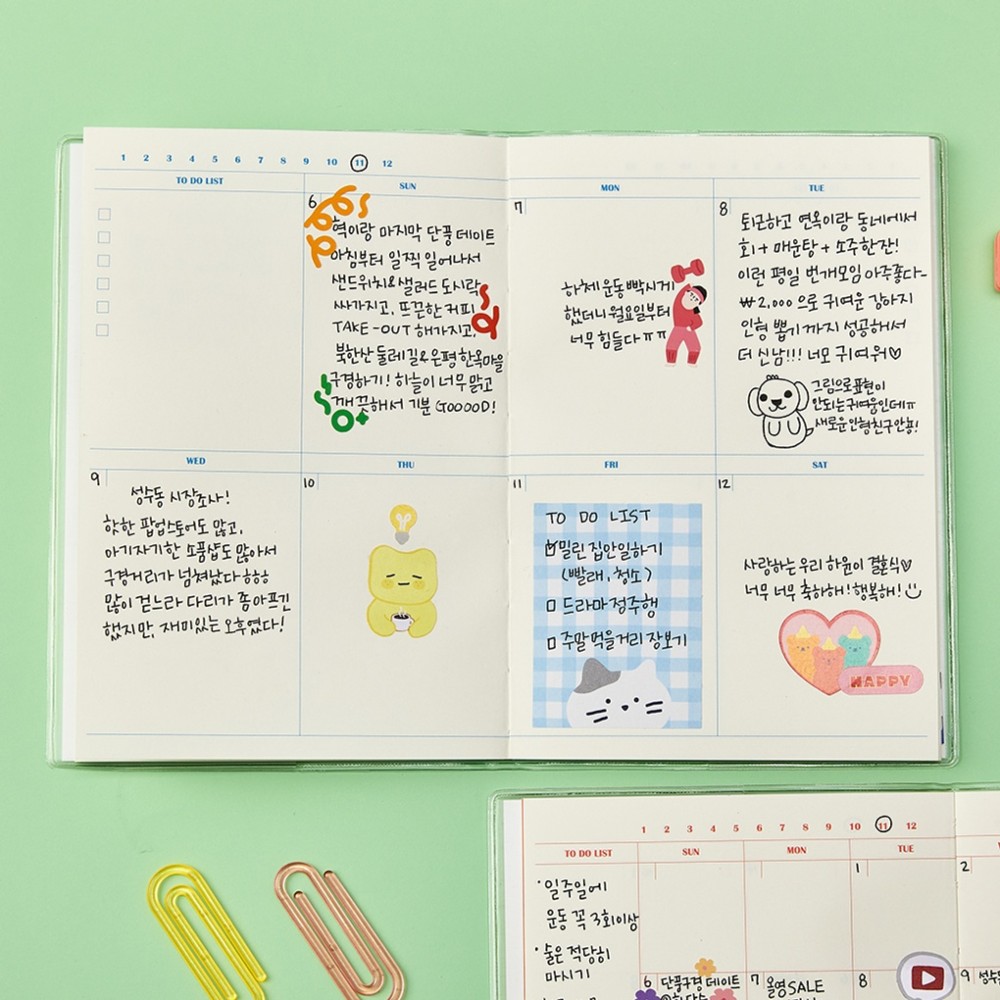 1 2 3 4 5 6 7 8 9 10 11 12
TO DO LIST
SUN
6
혁이랑 마지막 단풍 데이트
아침부터 일찍 일어나서
샌드위치&샐러드 도시락
싸가지고, 뜨끈한 커피
TAKE-OUT 해가지고,
북한산 둘레길&은평 한옥마을
구경하기! 하늘이 너무 맑고
깨끗해서 기분 GOOOOD!
MON
7
하체 운동 빡시게
했더니 월요일부터
너무 힘들다ㅠㅠ
TUE
8
퇴근하고 연옥이랑 동네에서
회+매운탕+소주한잔!
이런 평일 번개모임 아주좋다~
₩2,000 으로 귀여운 강아지
인형 뽑기까지 성공해서
더 신남!!! 너모 귀여워♡
그림으로 표현이
안되는 귀여움인데ㅠ
새로운 인형친구 안뇽!
WED
9
성수동 시장조사!
핫한 팝업스토어도 많고,
아기자기한 소품샵도 많아서
구경거리가 넘쳐났다ㅎㅎㅎ
많이 걷느라 다리가 좀 아프긴
했지만, 재미있는 오후였다!
THU
10
FRI
11
TO DO LIST
밀린 집안일하기
(빨래, 청소)
드라마 정주행
주말 먹을거리 장보기
SAT
12
사랑하는 우리 하윤이 결혼식♡
너무 너무 축하해! 행복해!
HAPPY
1 2 3 4 5 6 7 8 9 10 11 12
TO DO LIST
SUN
MON
TUE
1
2
·일주일에
운동 꼭 3회이상
·술은 적당히
마시기
6 단풍구경 데이트
7 올영SALE
8
9